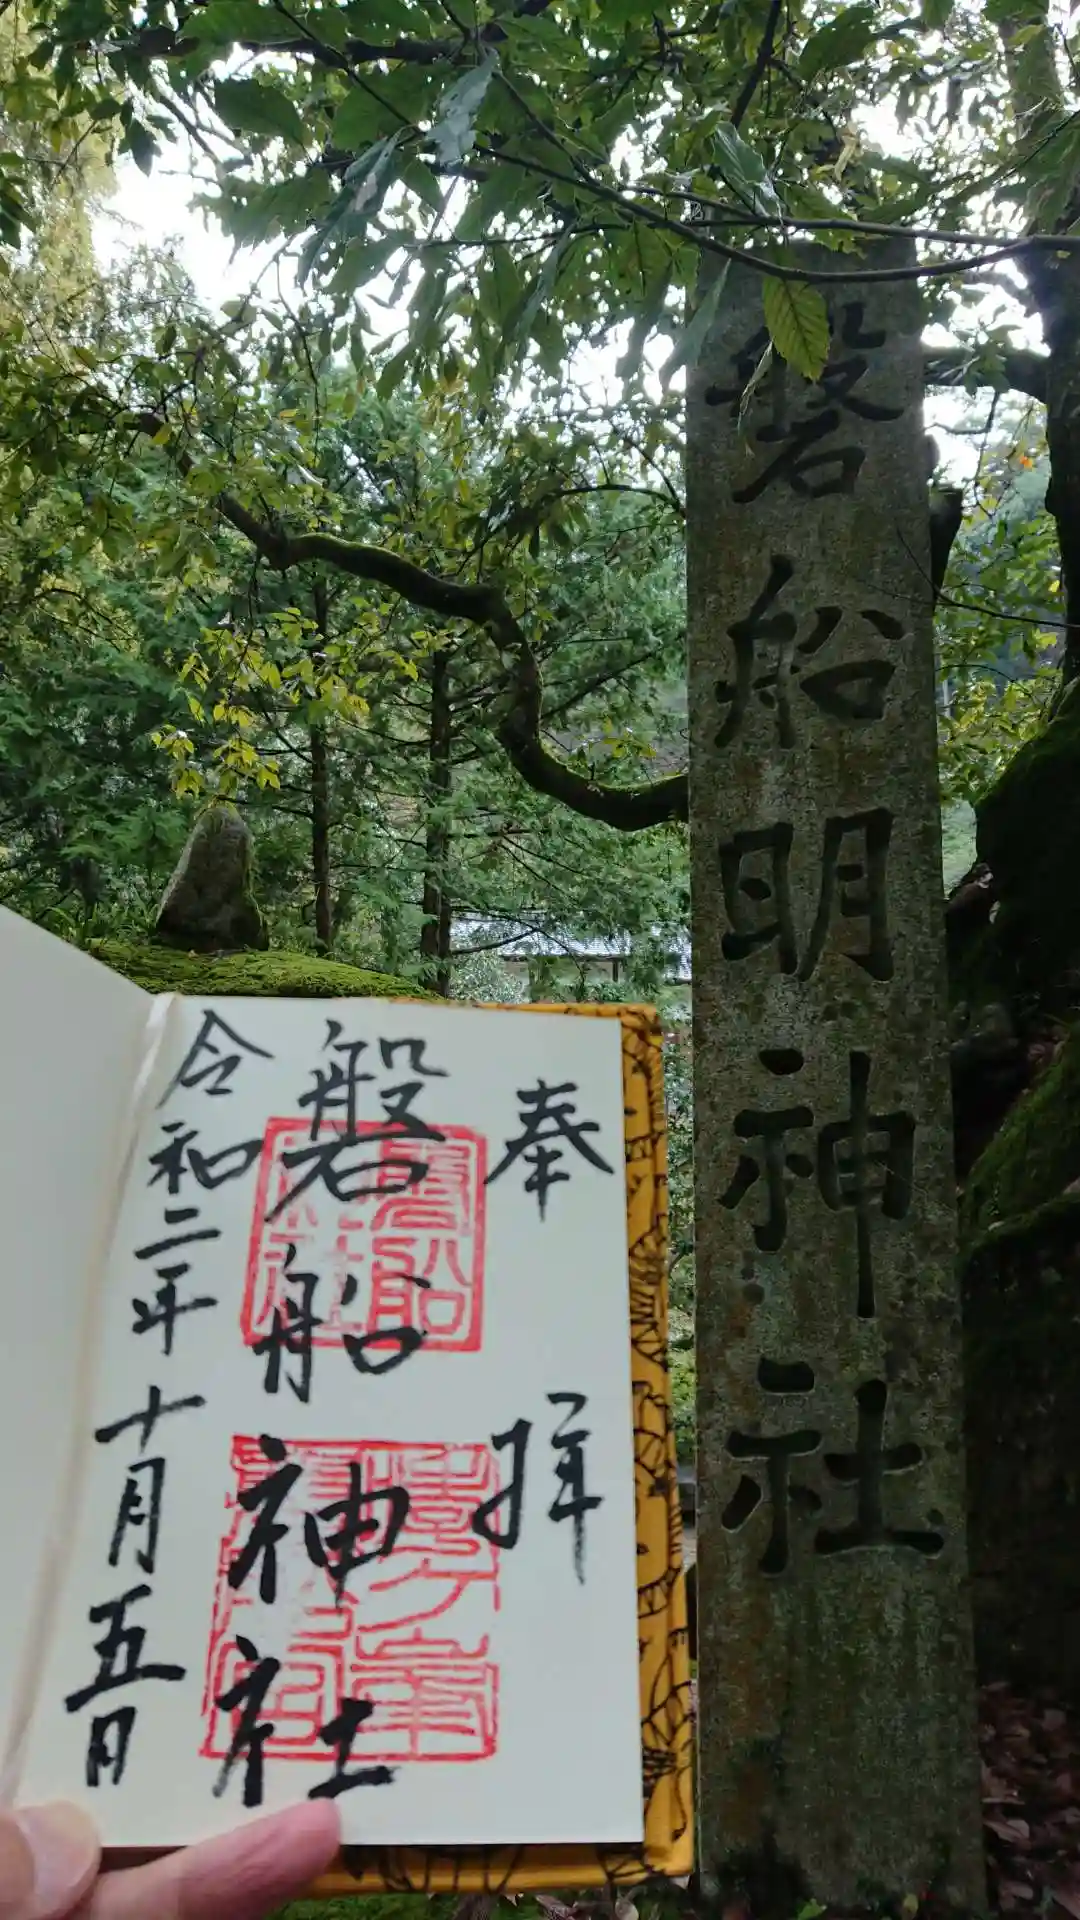 磐船明神社
奉拝
磐船神社
令和二年十月五日
磐船
神社